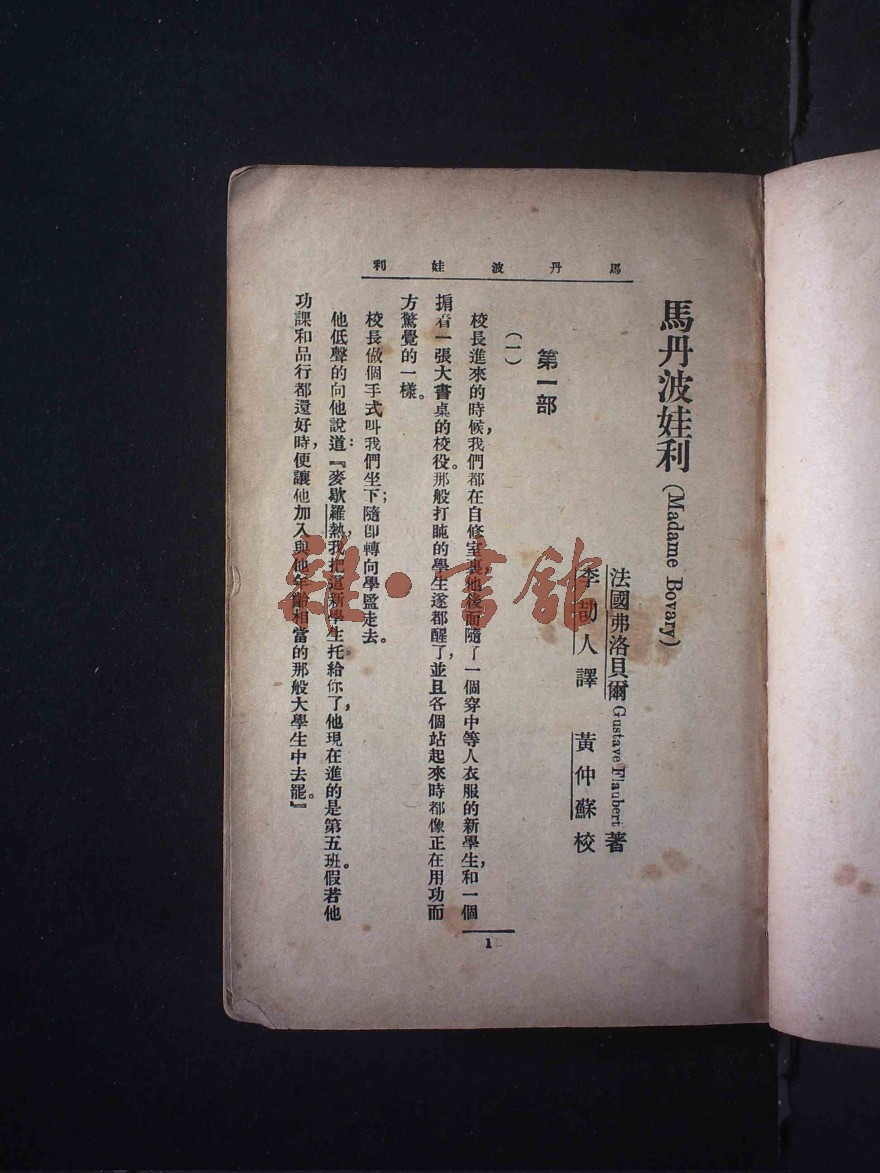 馬丹波娃利
馬丹波娃利(Madame Bovary)
法國弗洛貝爾 Gustave Flaubert 著
李劼人譯 黃仲蘇校
第一部
(一)
校長進來的時候,我們都在自修室裏,他後面隨了一個穿中等人衣服的新學生,和一個
掮着一張大書桌的校役。那般打盹的學生遂都醒了,並且各個站起來時都像正在用功而
方驚覺的一樣。
校長做個手式叫我們坐下;隨卽轉向學監走去。
他低聲的向他說道:『麥歇羅熱,我把這新學生托給你了,他現在進的是第五班。假若他
功課和品行都還好時,便讓他加入與他年齡相當的那般大學生中去罷。』
1
雜·書館